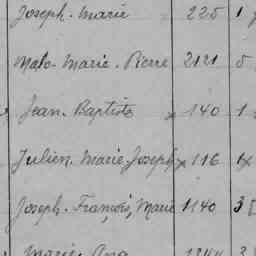 Joseph. Marie 225 1
Malo. Marie. Pierre 2121 5
Jean. Baptiste x 140 1
Julien. Marie Joseph x 116 1x
Joseph. François, Marie 1140 3
Marie. Ang